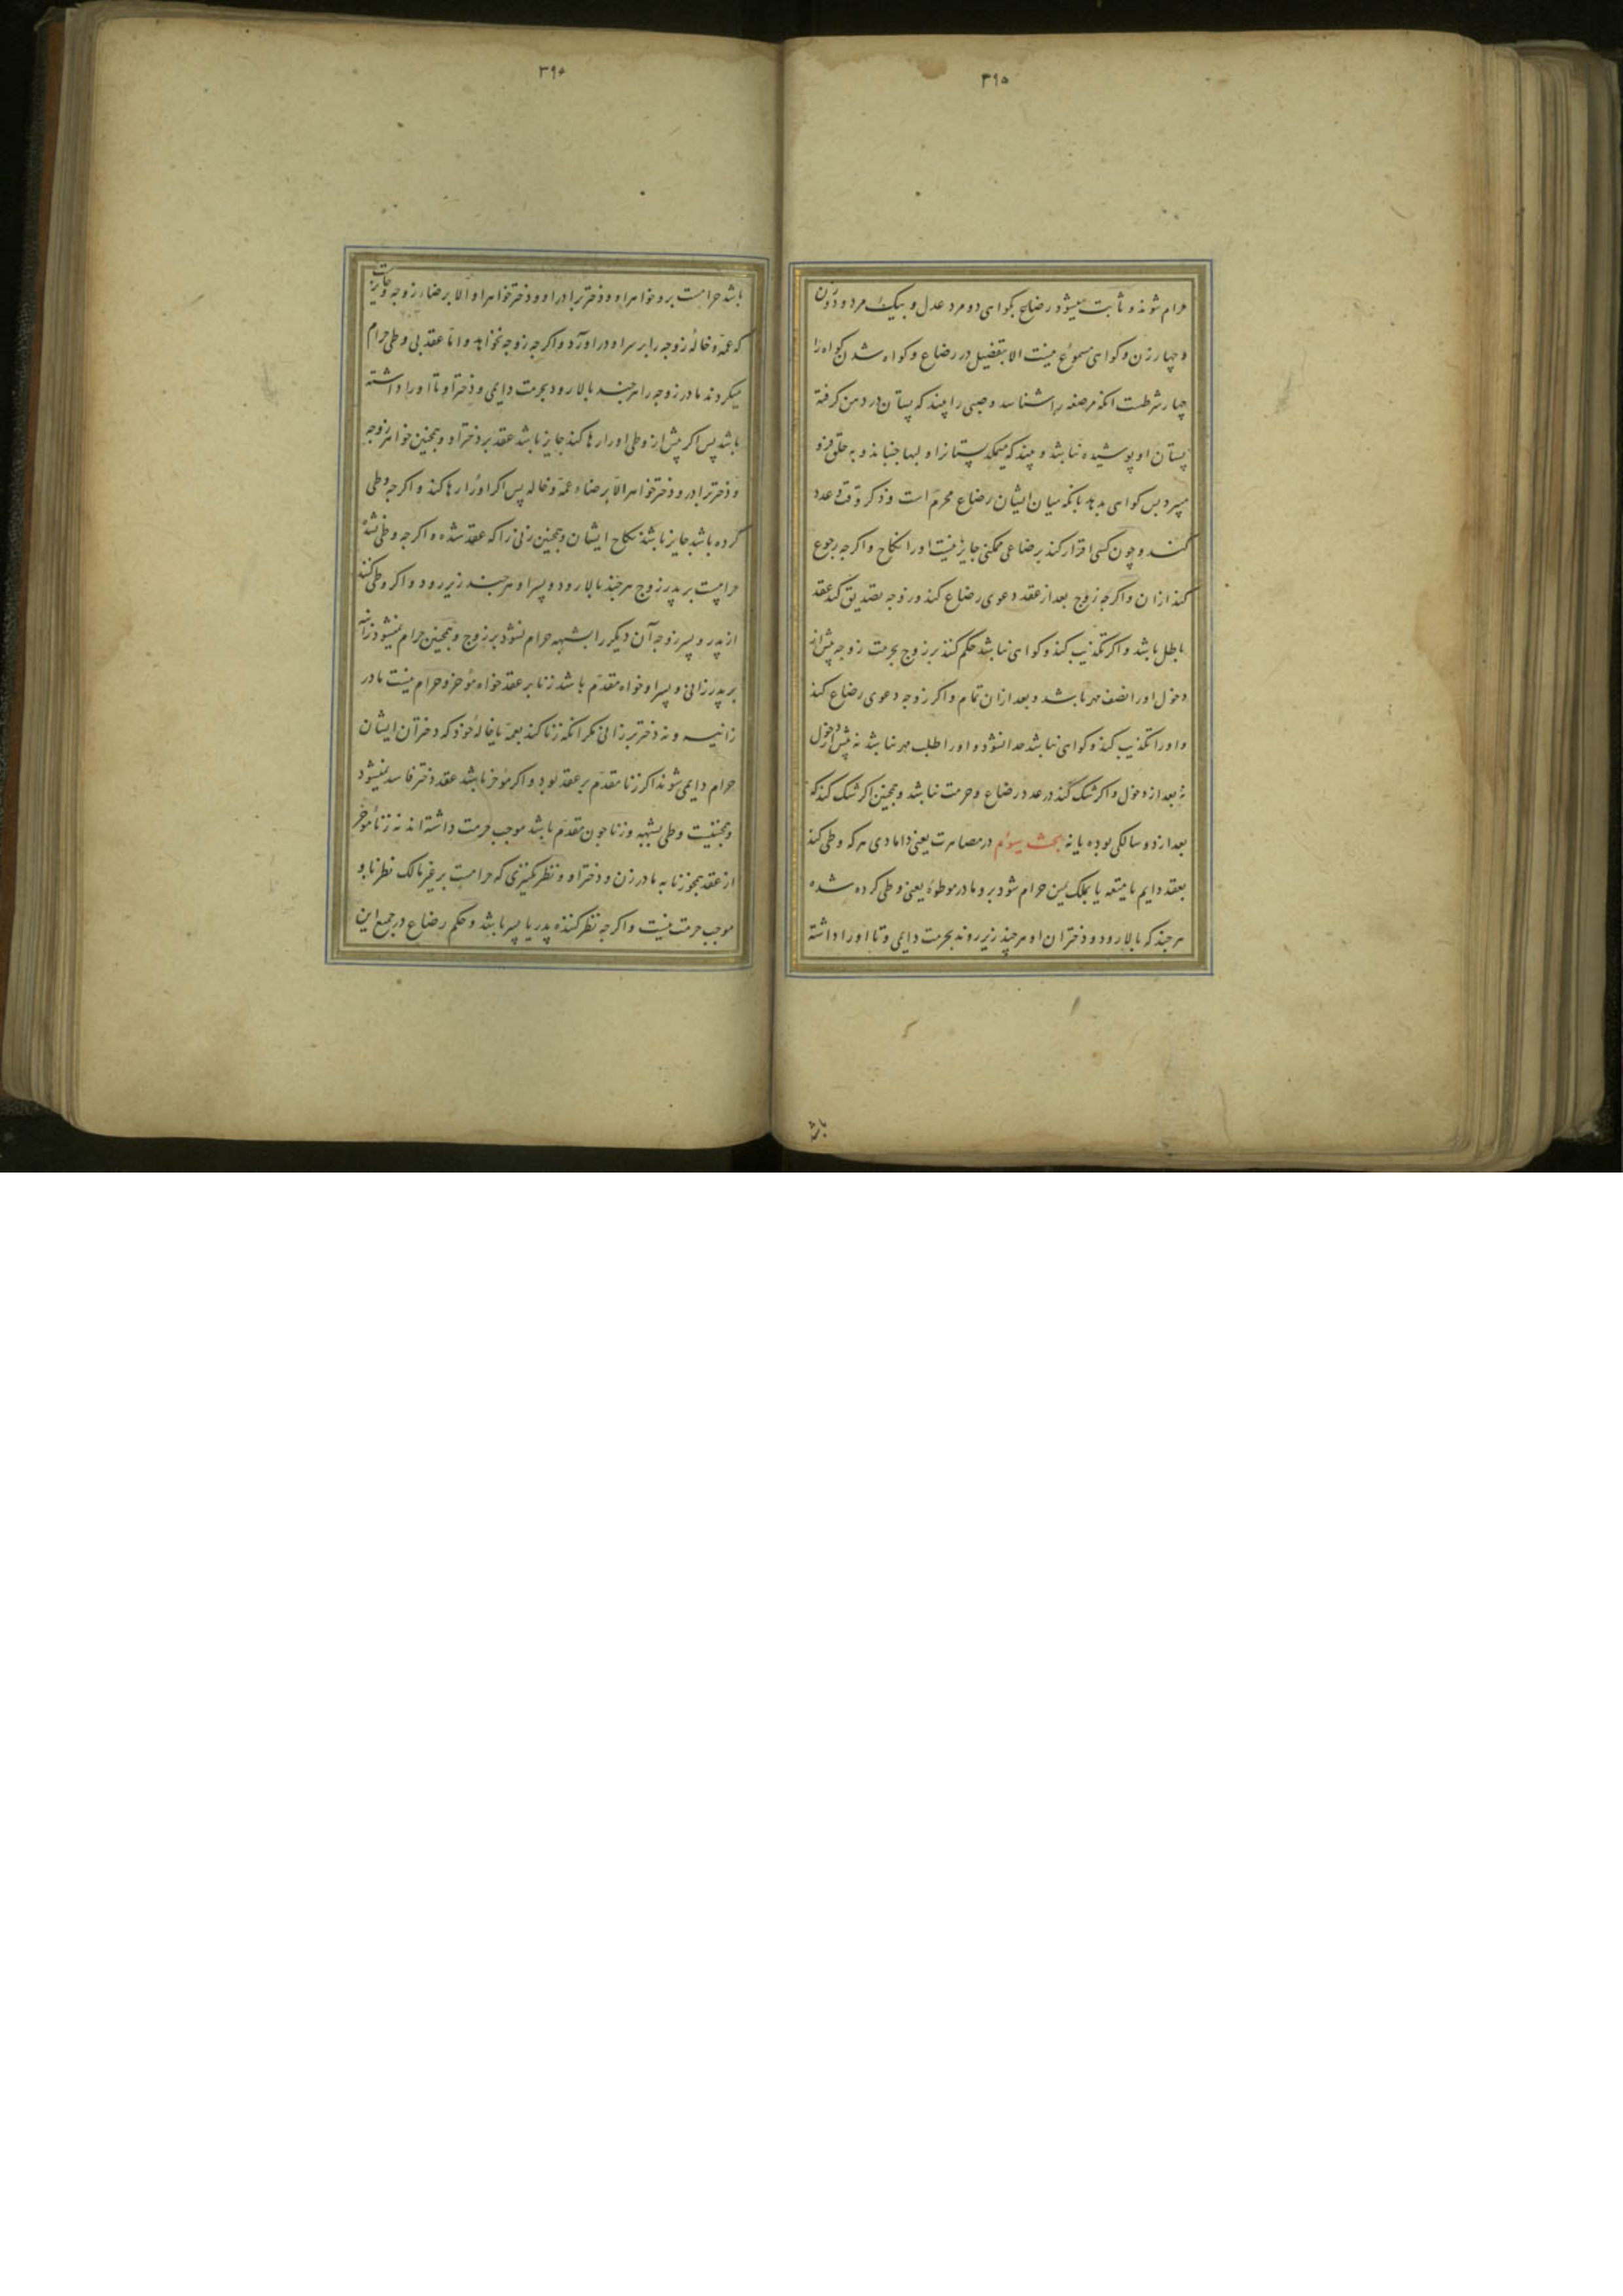 ۳۹۵
حرام شوند و ثابت میشود رضاع بگواهی دو مرد عدل و بیک مرد و دو زن
و چهار زن و کواهی مسموع نیست الا بتفصیل در رضاع و کواه شدن کواه را
چهار شرطست انکه مرضعه را شناسد و صبی را بیند که پستان در دهن کرفته
پستان او پوشیده نباشد و بیند که میمکد پستانرا و لبها جنباند و به حلق فرو
میبرد پس کواهی بدهد بانکه میان ایشان رضاع محرم است و ذکر وقت و عدد
کنند و چون کسی اقرار کند برضاعی ممکنی جایز نیست او را نکاح و اکرچه رجوع
کند ازان و اکرچه زوج بعد از عقد دعوی رضاع کند و زوجه تصدیق کند عقد
باطل باشد و اکر تکذیب کند و کواهی نباشد حکم کنند بر زوج بحرمت زوجه پیش از
دخول او را نصف مهر باشد و بعد ازان تمام و اکر زوجه دعوی رضاع کند
و او را تکذیب کند و کواهی نباشد جدا نشود و او را طلب مهر نباشد نه پیش از دخول
نه بعد از دخول و اکر شک کند در عدد رضاع و حرمت نباشد و همچنین اکر شک کند که
بعد از دو سالکی بوده یا نه بحث سیوم در مصاهرت یعنی دامادی هر که وطی کند
بعقد دایم یا متعه یا بملک یمین حرام شود برو مادر موطوئه یعنی وطی کرده شده
هر چند که بالا رود و دختران او هر چند زیر روند بحرمت دایمی و تا او را داشته
باشد
۳۹۶
باشد حرامست برو خواهر او و دختر برادر او و دختر خواهر او الا برضاء زوجه و جایز است
که عمه و خالهٔ زوجه را بر سر او در اورد و اکرچه زوجه نخواهد و اما عقد بی وطی حرام
میکرداند مادر زوجه را هر چند بالا رود بحرمت دایمی و دختر او تا او را داشته
باشد پس اکر پیش از وطی او را رها کند جایز باشد عقد بر دختر او و همچنین خواهر زوجه
و دختر برادر و دختر خواهر الا برضاء عمه و خاله پس اکر او را رها کند و اکرچه وطی
کرده باشد جایز باشد نکاح ایشان و همچنین زنی را که عقد شده و اکرچه وطی نشده
حرامست بر پدر زوج هر چند بالا رود و پسر او هر چند زیر رود و اکر وطی کند
از پدر و پسر زوجه آن دیکر را بشبهه حرام نشود بر زوج و همچنین حرام نمیشود زانیه
بر پدر زانی و پسر او خواه مقدم باشد زنا بر عقد خواه مؤخر و حرام نیست مادر
زانیه و نه دختر بر زانی مکر انکه زنا کند بعمه یا خالهٔ خود که دختران ایشان
حرام دایمی شوند اکر زنا مقدم بر عقد بود و اکر مؤخر باشد عقد دختر فاسد نمیشود
و همچنین وطی بشبهه و زنا چون مقدم باشد موجب حرمت داشته اند نه زناء مؤخر
از عقد همچو زنا به مادر زن و دختر او و نظر کنیزی که حرامست بر غیر مالک نظر باو
موجب حرمت نیست و اکرچه نظر کننده پدر یا پسر باشد و حکم رضاع در جمیع این